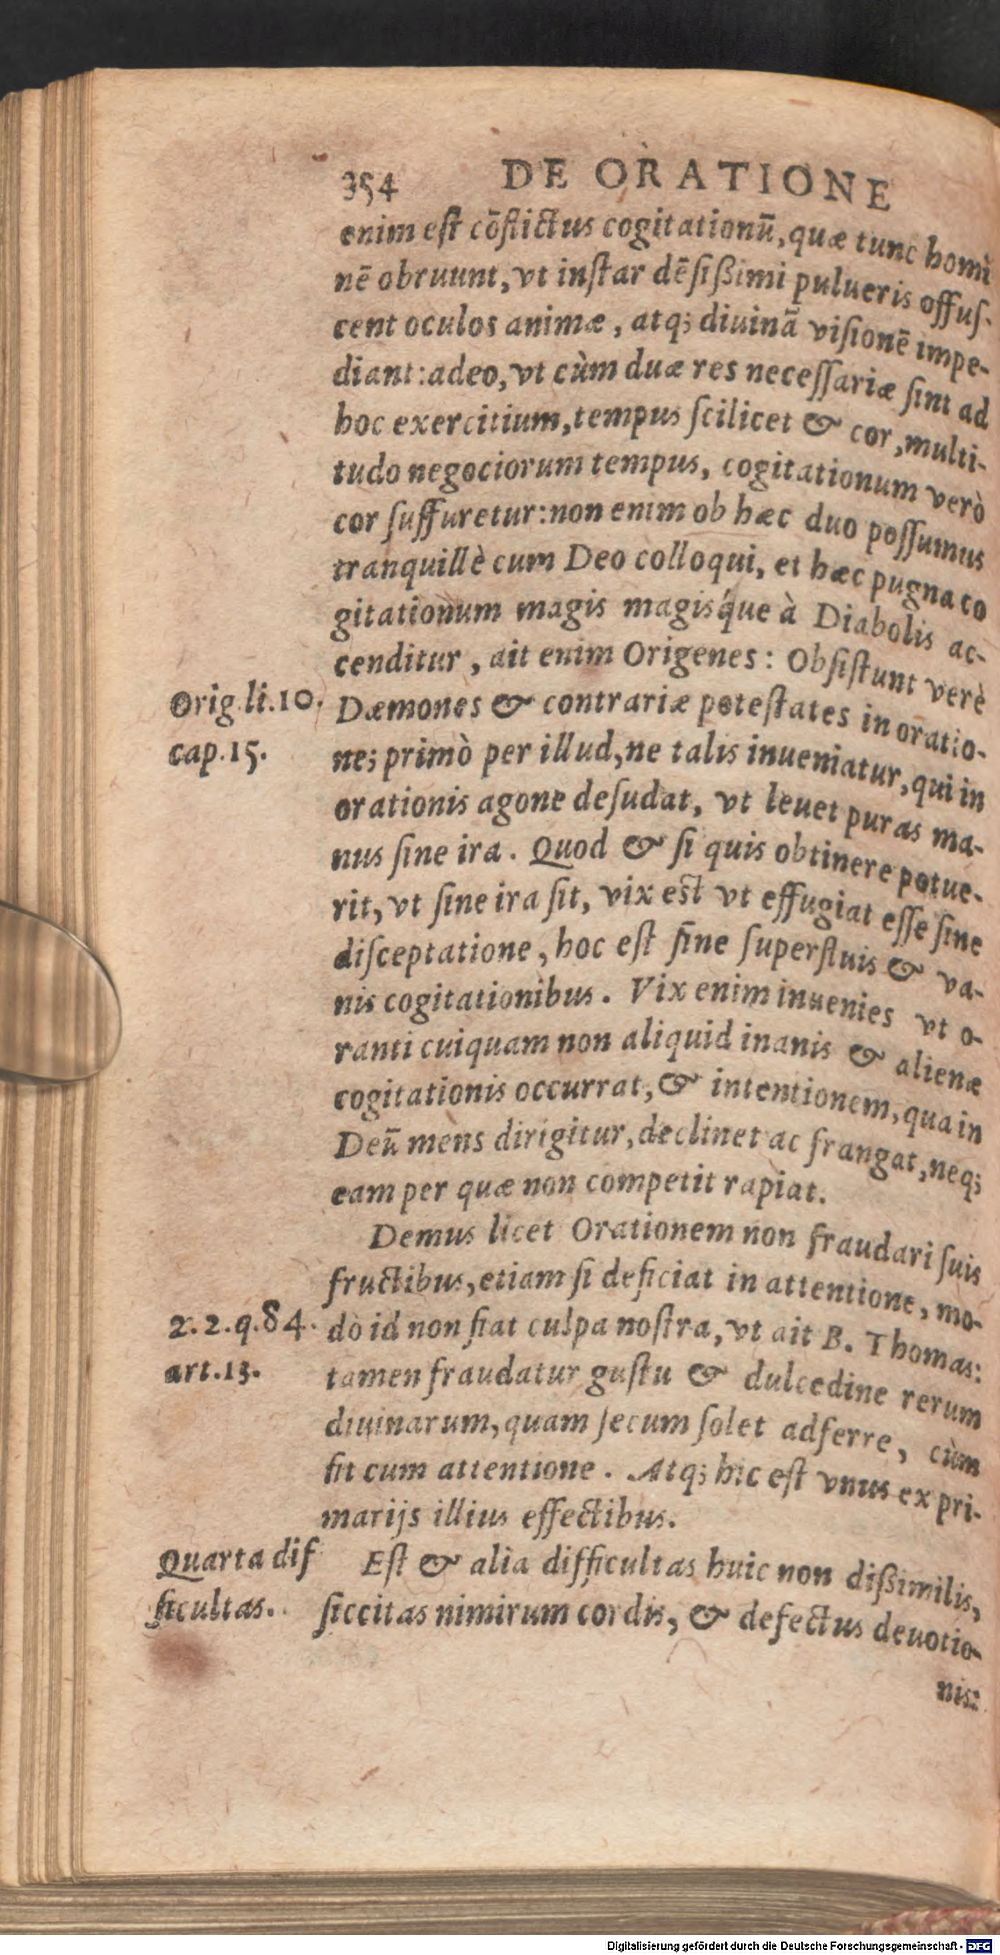 354 DE ORATIONE
enim est cōflictus cogitationū, quæ tunc homi
nē obruunt, vt instar dēsißimi pulueris offus-
cent oculos animæ, atq; diuinā visionē impe-
diant: adeo, vt cùm duæ res necessariæ sint ad
hoc exercitium, tempus scilicet & cor, multi-
tudo negociorum tempus, cogitationum verò
cor suffuretur: non enim ob hæc duo possumus
tranquillè cum Deo colloqui, et hæc pugna co
gitationum magis magisq́ue à Diabolis ac-
cenditur, ait enim Origenes: Obsistunt verè
Orig. li. 10.
cap. 15.
Dæmones & contrariæ potestates in oratio-
ne; primò per illud, ne talis inueniatur, qui in
orationis agone desudat, vt leuet puras ma-
nus sine ira. Quod & si quis obtinere potue-
rit, vt sine ira sit, vix est vt effugiat esse sine
disceptatione, hoc est sine superfluis & va-
nis cogitationibus. Vix enim inuenies vt o-
ranti cuiquam non aliquid inanis & alienæ
cogitationis occurrat, & intentionem, qua in
Deū mens dirigitur, declinet ac frangat, neq;
eam per quæ non competit rapiat.
Demus licet Orationem non fraudari suis
fructibus, etiam si deficiat in attentione, mo-
2. 2. q. 84.
art. 13.
dò id non fiat culpa nostra, vt ait B. Thomas:
tamen fraudatur gustu & dulcedine rerum
diuinarum, quam secum solet adferre, cùm
fit cum attentione. Atq; hic est vnus ex pri-
marijs illius effectibus.
Quarta dif
ficultas.
Est & alia difficultas huic non dißimilis,
siccitas nimirum cordis, & defectus deuotio-
nis:
Digitalisierung gefördert durch die Deutsche Forschungsgemeinschaft - DFG